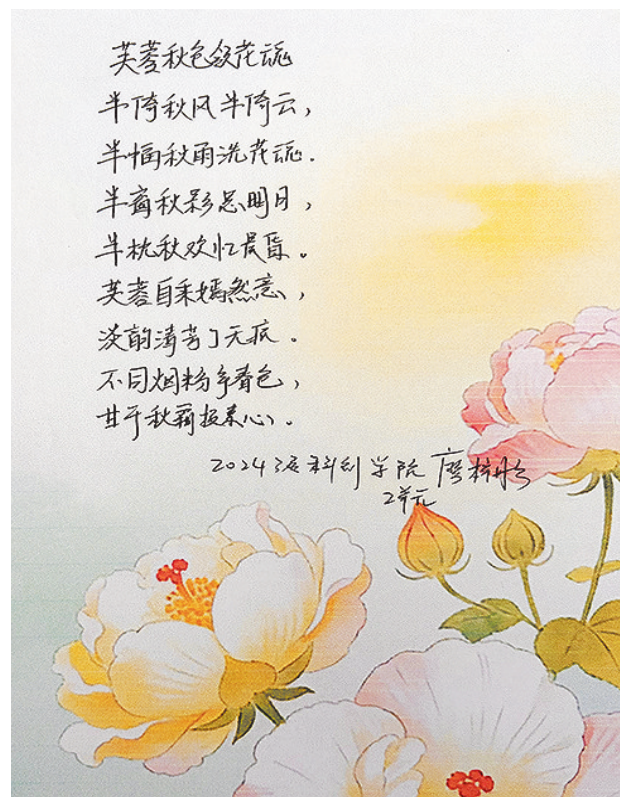 芙蓉秋色 花魂
半倚秋风半倚云，
半幅秋雨洗花魂．
半窗秋影忆明月，
半枕秋欢忆晨昏。
芙蓉自来嫣然意，
淡韵清芳了无痕．
不同烟粉争春色，
甘于秋霜披素心。
2024 学院 廖梓彤
2单元